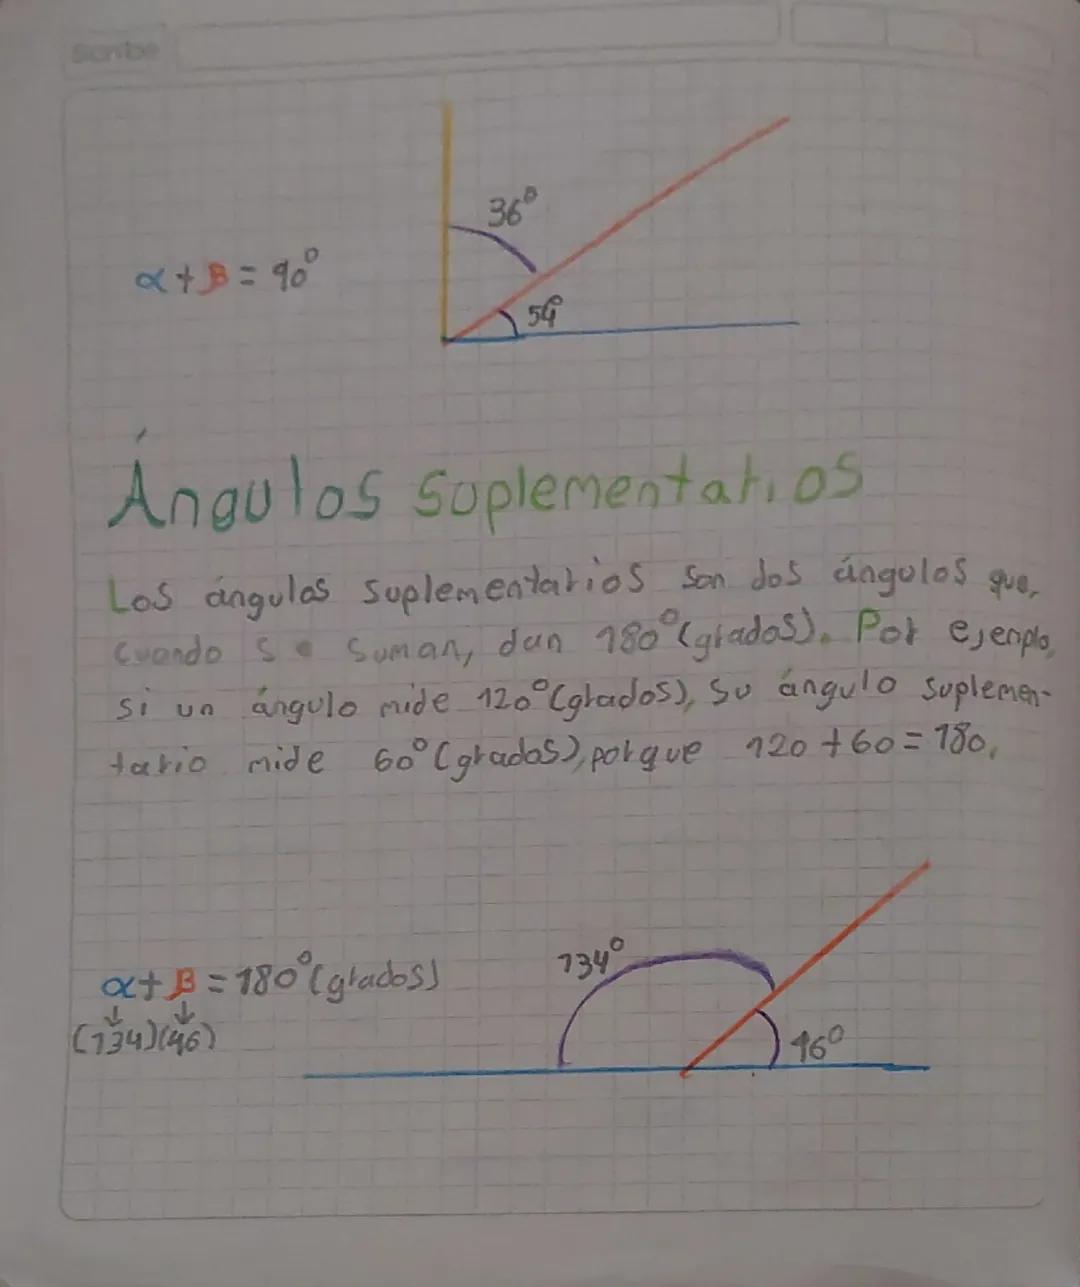 Scribe
36°
α + β = 90°
54°
Ángulos suplementarios
Los ángulos suplementarios son dos ángulos que,
cuando se suman, dan 180° (grados). Por ejemplo,
si un ángulo mide 120° (grados), su ángulo suplemen-
tario mide 60° (grados), porque 120 + 60 = 180.
134°
α + β = 180° (grados)
↓ ↓
(134)(46)
46°